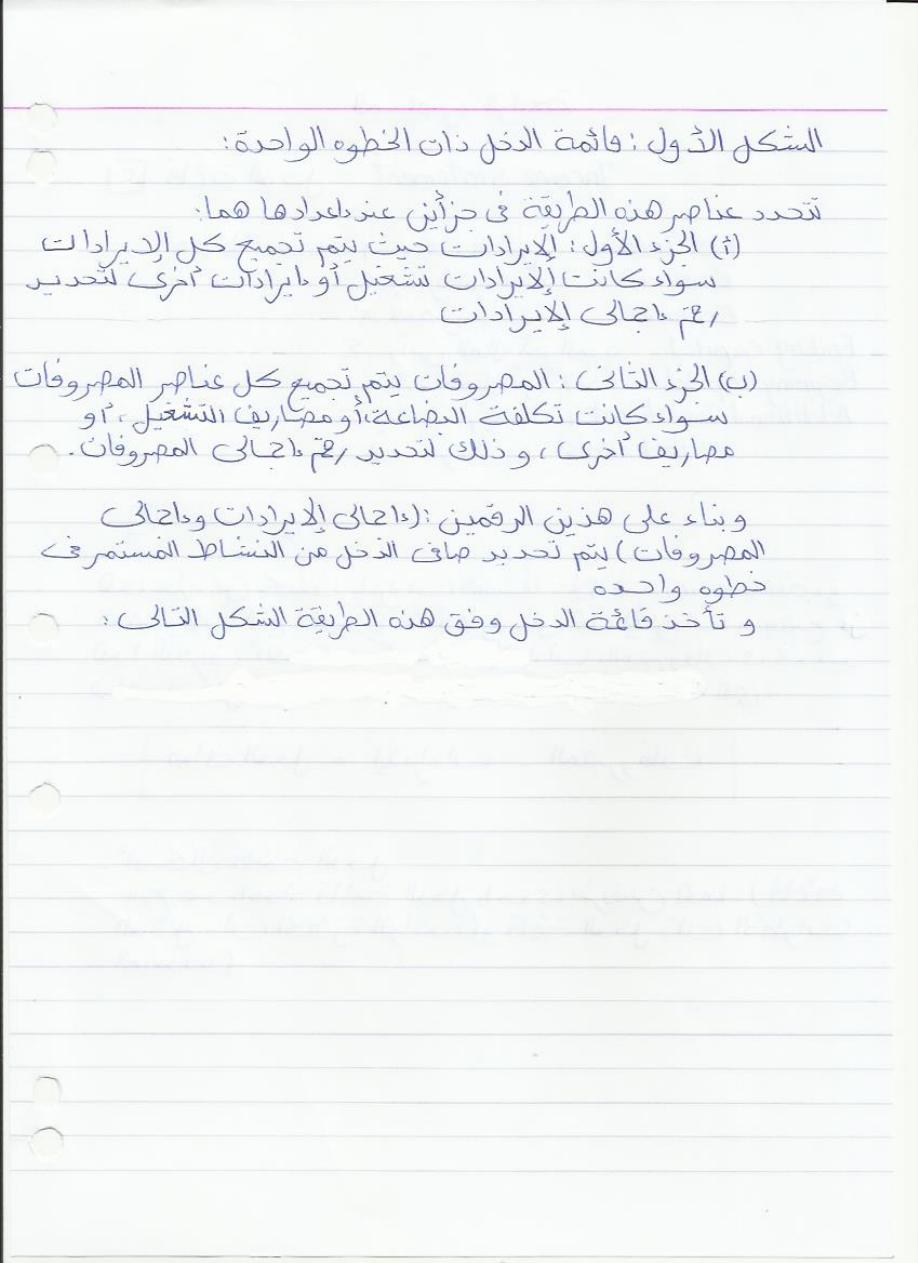 الشكل الأول : قائمة الدخل ذات الخطوه الواحدة :
تتحدد عناصر هذه الطريقة فى جزأين عند إعدادها هما :
(أ) الجزء الأول : الإيرادات حيث يتم تجميع كل الإيرادات
سواء كانت الإيرادات تشغيل أو إيرادات أخرى لتحديد
رقم إجمالى الإيرادات
(ب) الجزء الثانى : المصروفات يتم تجميع كل عناصر المصروفات
سواء كانت تكلفة البضاعة ، أو مصاريف التشغيل ، أو
مصاريف أخرى ، و ذلك لتحديد رقم إجمالى المصروفات .
و بناء على هذين الرقمين : (إجمالى الإيرادات وإجمالى
المصروفات) يتم تحديد صافى الدخل من النشاط المستمر فى
خطوه واحده
و تأخذ قائمة الدخل وفق هذه الطريقة الشكل التالى :